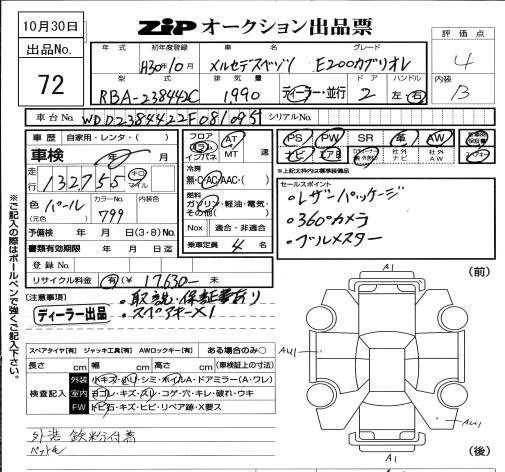 10月30日
ZIP オークション出品票
出品No.
72
年式
初年度登録
車名
グレード
H30年10月
メルセデスベンツ
E200カブリオレ
型式
排気量
ドア
ハンドル
RBA-238442C
1,990
ディーラー・並行
2
左・右
評価点
4
内装
B
車台No.
WDD2384422F081095
シリアルNo.
車歴
自家用・レンタ・( )
車検
年 月
走行
132755
キロ
マイル
色
(元色)
パール
カラーNo.
799
内装色
予備検 年 月 日(3・8)MOTAS
書類有効期限 年 月 日迄
登録No.
リサイクル料金
有 ¥17630- 未
フロア
フラ
インパネ
AT
MT
速
冷房
無・C・AC・AAC・( )
燃料
ガソリン・軽油・電気・
その他( )
Nox
適合・非適合
乗車定員
4名
PS
PW
SR
革
AW
ナビ
エアB
社外ナビ
社外AW
※上記太枠内は標準装備品
セールスポイント
・レザーパッケージ
・360°カメラ
・ブルメスター
[注意事項]
ディーラー出品
・取説・保証書あり
・スペアキー×1
※ご記入の際はボールペンで強くご記入下さい。
スペアタイヤ[有] ジャッキ工具[有] AWロックキー[有] ある場合のみ○
長さ cm 幅 cm 高さ cm (車検証上の寸法)
検査記入
外装
小キズ・小ヘコ・シミ・ホイルA・ドアミラー(A・ワレ)
室内
ヨゴレ・キズ・スリ・コゲ・穴・キレ・破れ・ウキ
FW
トビ石・キズ・ヒビ・リペア跡・X要ス
外装 鉄粉付着
(前)
A1
AU1
AU1
A1
(後)